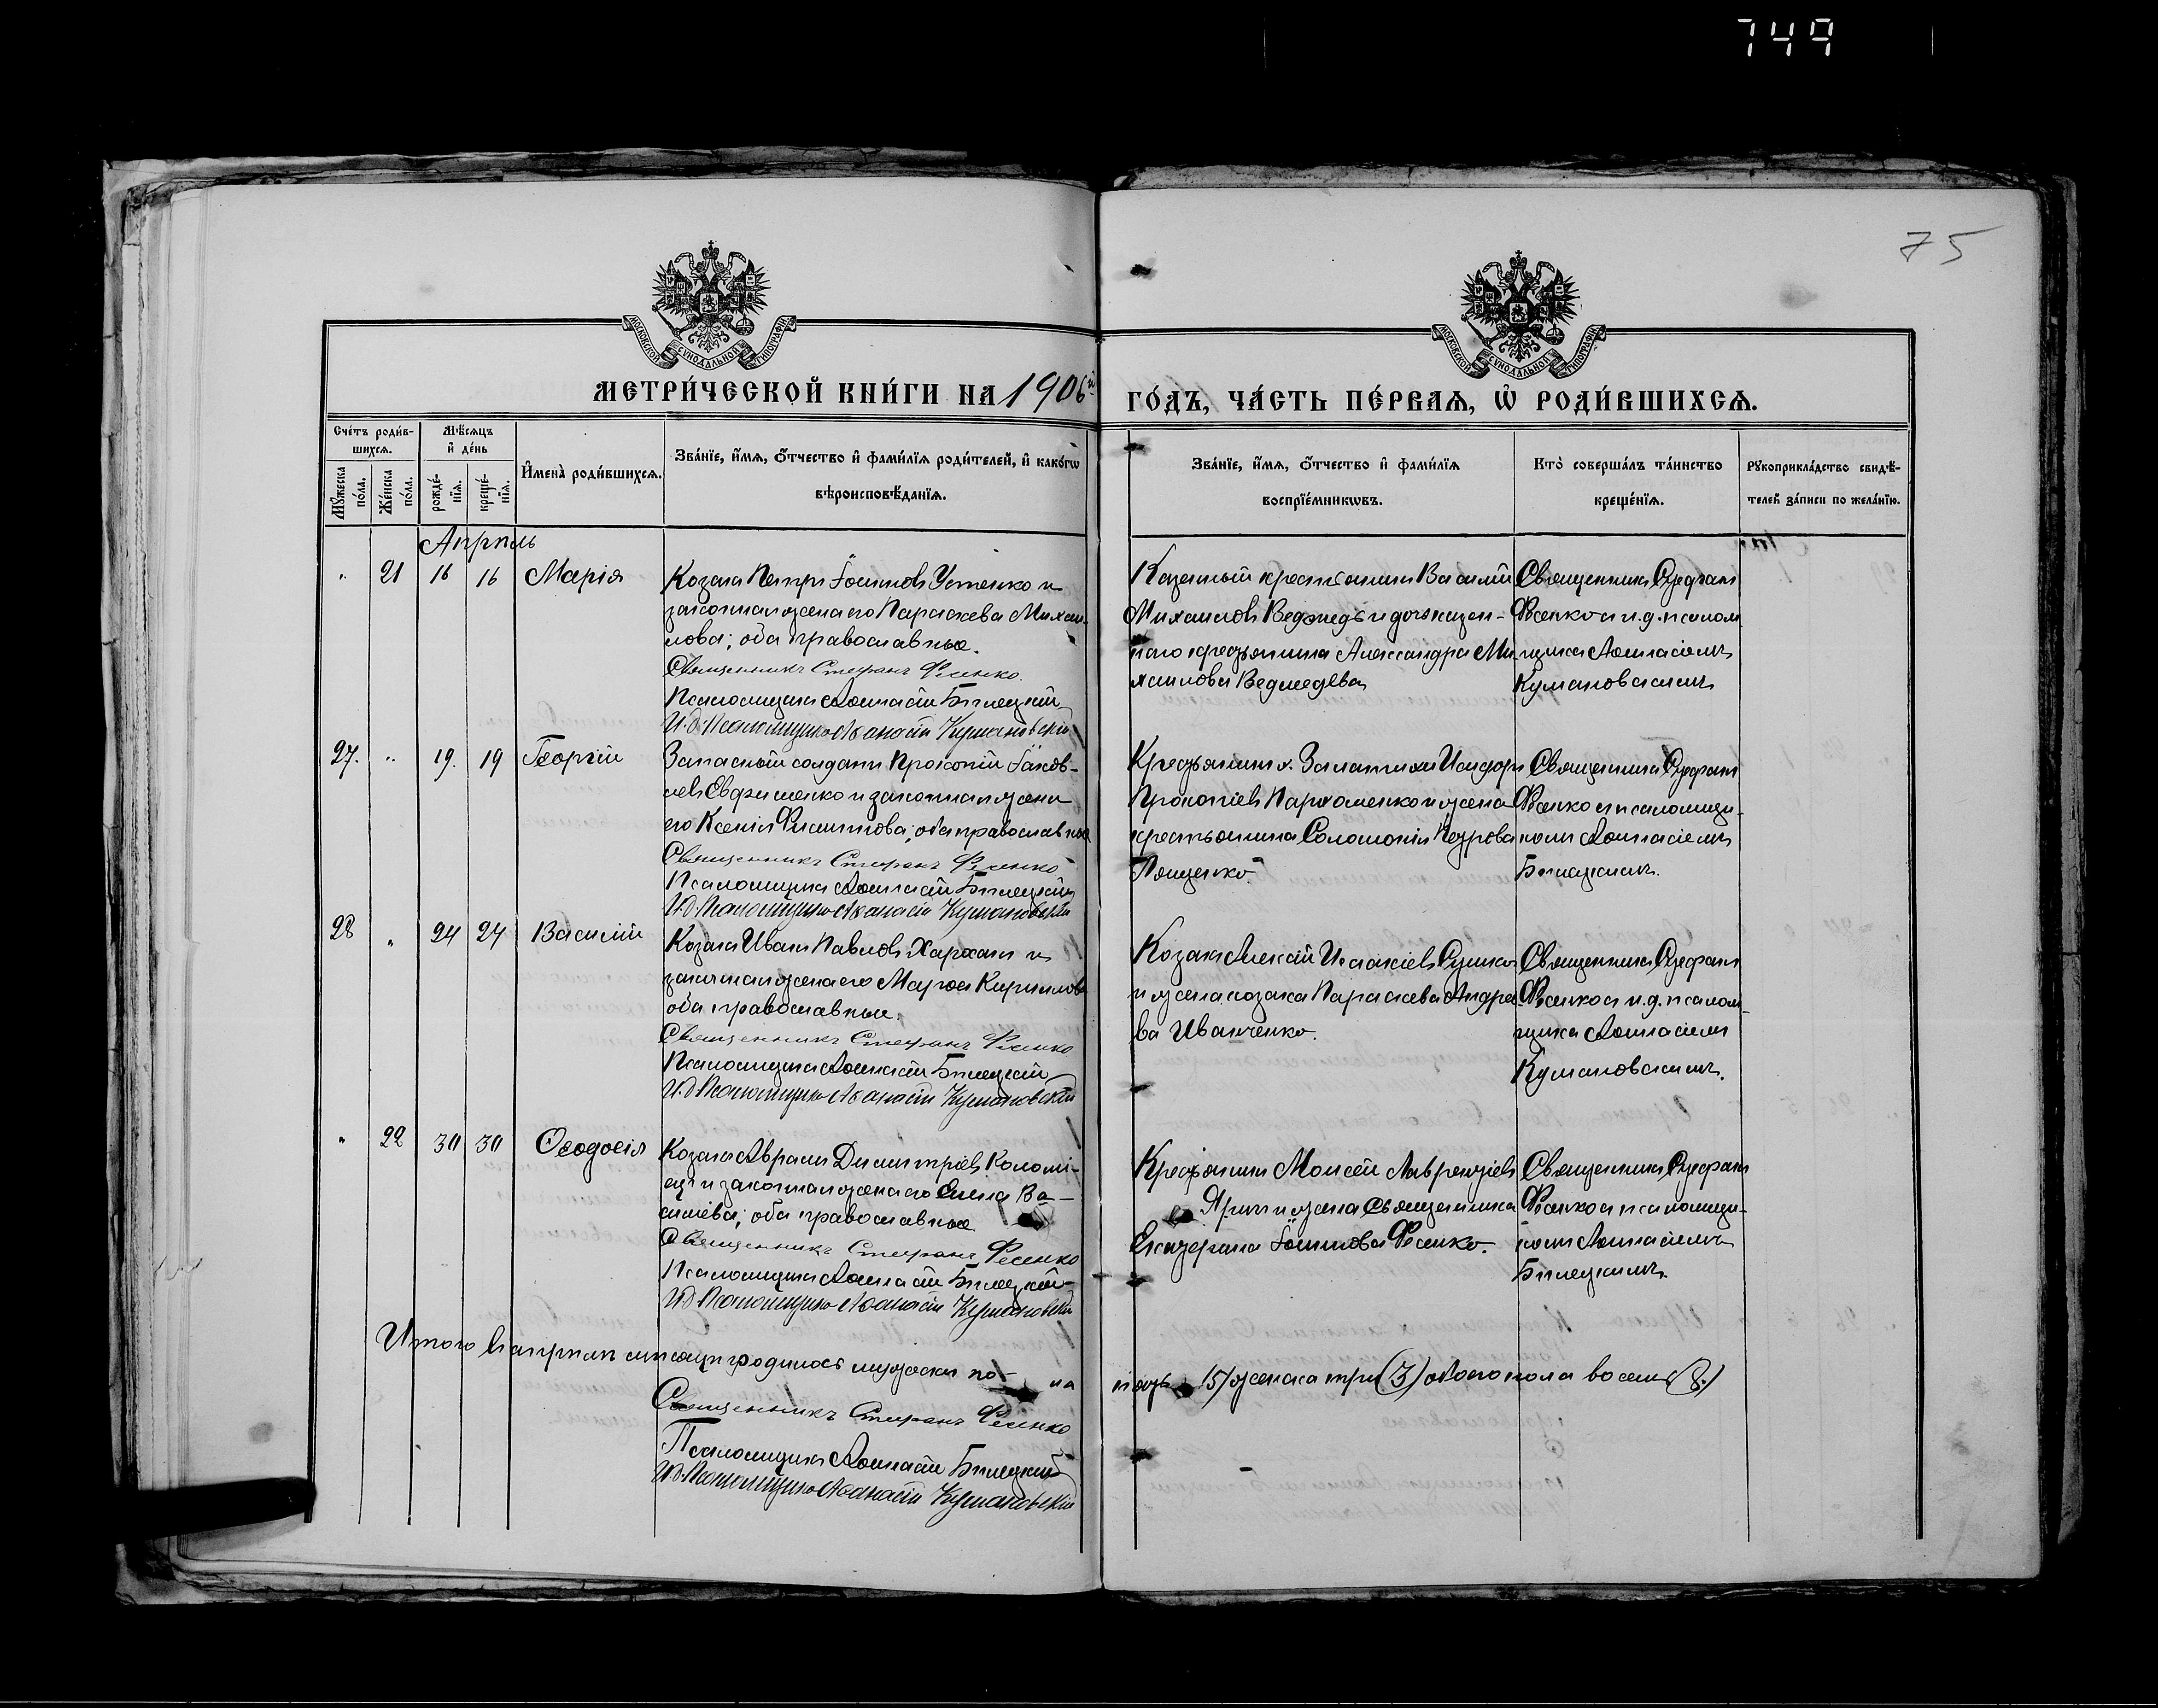 749
75
МОСКОВСКОЙ СѴНОДАЛЬНОЙ ТИПОГРАФІИ
МОСКОВСКОЙ СѴНОДАЛЬНОЙ ТИПОГРАФІИ
МЕТРИ́ЧЕСКОЙ КНИ́ГИ НА 1906й
ГО́ДЪ, ЧА́СТЬ ПЕ́РВАЯ, Ѡ҆ РОДИ́ВШИХСЯ.
Сче́тъ роди́в-
шихся.
Му́жеска по́ла.
Же́нска по́ла.
Мѣ́сяцъ
и҆ де́нь
рожде́-
нїя.
креще́-
нїя.
И҆мена̀ роди́вшихся.
Зва́нїе, и҆́мя, о҆́тчество и҆ фами́лїя роди́телей, и҆ како́гѡ
вѣроисповѣ́данїя.
Зва́нїе, и҆́мя, о҆́тчество и҆ фами́лїя
воспрїе́мникѡвъ.
Кто̀ соверша́лъ та́инство
креще́нїя.
Рукоприкла́дство свидѣ́-
телей за́писи по жела́нїю.
Апрѣль
" 21 16 16 Марія
Козакъ Петръ Іоанновъ Устенко и
законная жена его Параскева Михаи-
лова; оба православные.
Священникъ Стефанъ Фесенко.
Псаломщикъ Аѳанасій Билецкій
И.д. Псаломщика Аѳанасій Кумановскій
Казенный крестьянинъ Василій
Михаиловъ Ведмедь и дочь казен-
наго крестьянина Александра Ми-
хаилова Ведмедева
Священникъ Стефанъ
Фесенко съ и.д. псалом
щика Аѳанасіемъ
Кумановскимъ
27. " 19. 19 Георгій
Запасный солдатъ Прокопій Іаков-
левъ Евфименко и законная жена
его Ксенія Филиппова; оба православные
Священникъ Стефанъ Фесенко
Псаломщикъ Аѳанасій Билецкій
И.д. Псаломщика Аѳанасій Кумановскій
Крестьянинъ х. Исидоръ
Прокопіевъ Пархоменко и жена
крестьянина Соломонія Петрова
Священникъ Стефанъ
Фесенко съ псаломщи-
комъ Аѳанасіемъ
Билецкимъ.
28 " 24 24 Василій
Козакъ Иванъ Павловъ Харханъ и
законная жена его Марѳа Кириллова
оба православные.
Священникъ Стефанъ Фесенко
Псаломщикъ Аѳанасій Билецкій
И.д. Псаломщика Аѳанасій Кумановскій
Козакъ Алексій Исаакіевъ Сушко
и жена козака Параскева Андрее
ва Иванченко.
Священникъ Стефанъ
Фесенко съ и.д. псалом-
щика Аѳанасіемъ
Кумановскимъ.
" 22 30 30 Ѳеодосія
Козакъ Аврамъ Димитріевъ Коломі-
ецъ и законная жена его Елена Ва-
силіева; оба православные
Священникъ Стефанъ Фесенко
Псаломщикъ Аѳанасій Билецкій
И.д. Псаломщика Аѳанасій Кумановскій
Крестьянинъ Моисей Лаврентіевъ
и жена священника
Екатерина Іоаннова Фесенко.
Священникъ Стефанъ
Фесенко съ псаломщи-
комъ Аѳанасіемъ
Билецкимъ.
Итого въ апрѣлѣ мѣсяцѣ родилось мужска по-ла пять (5) женска три (3) обоего пола восемь (8.)
Священникъ Стефанъ Фесенко
Псаломщикъ Аѳанасій Билецкій
И.д. Псаломщика Аѳанасій Кумановскій